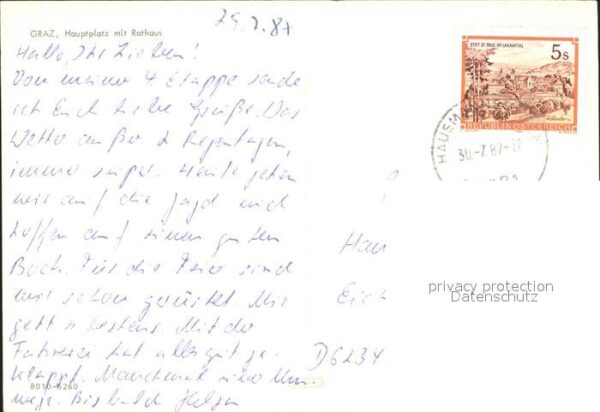 29.7.87
GRAZ, Hauptplatz mit Rathaus
Hallo, Ihr Lieben!
Von meiner 4 Etappe sende
ich Euch liebe Grüße. Das
Wetter außer 2 Regentagen,
immer super. Heute gehen
wir auf die Jagd und
hoffen auf einen guten
Bock. Für die Feier sind
wir schon gerüstet. Mir
geht's bestens. Mit der
Fahrerei hat alles gut ge-
klappt. Manchmal
Bis bald Helga
8010-5260
STIFT ST. PAUL IM LAVANTTAL
5s
REPUBLIK ÖSTERREICH
HAUSM
30.-7.87-17
Han
Eich
D6234
privacy protection
Datenschutz